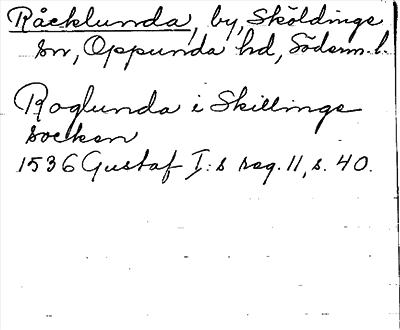 Råcklunda, by, Sköldinge
sn, Oppunda hd, Söderm. l.
Roglunda i Skillings
socken
1536 Gustaf I:s reg. 11, s. 40.